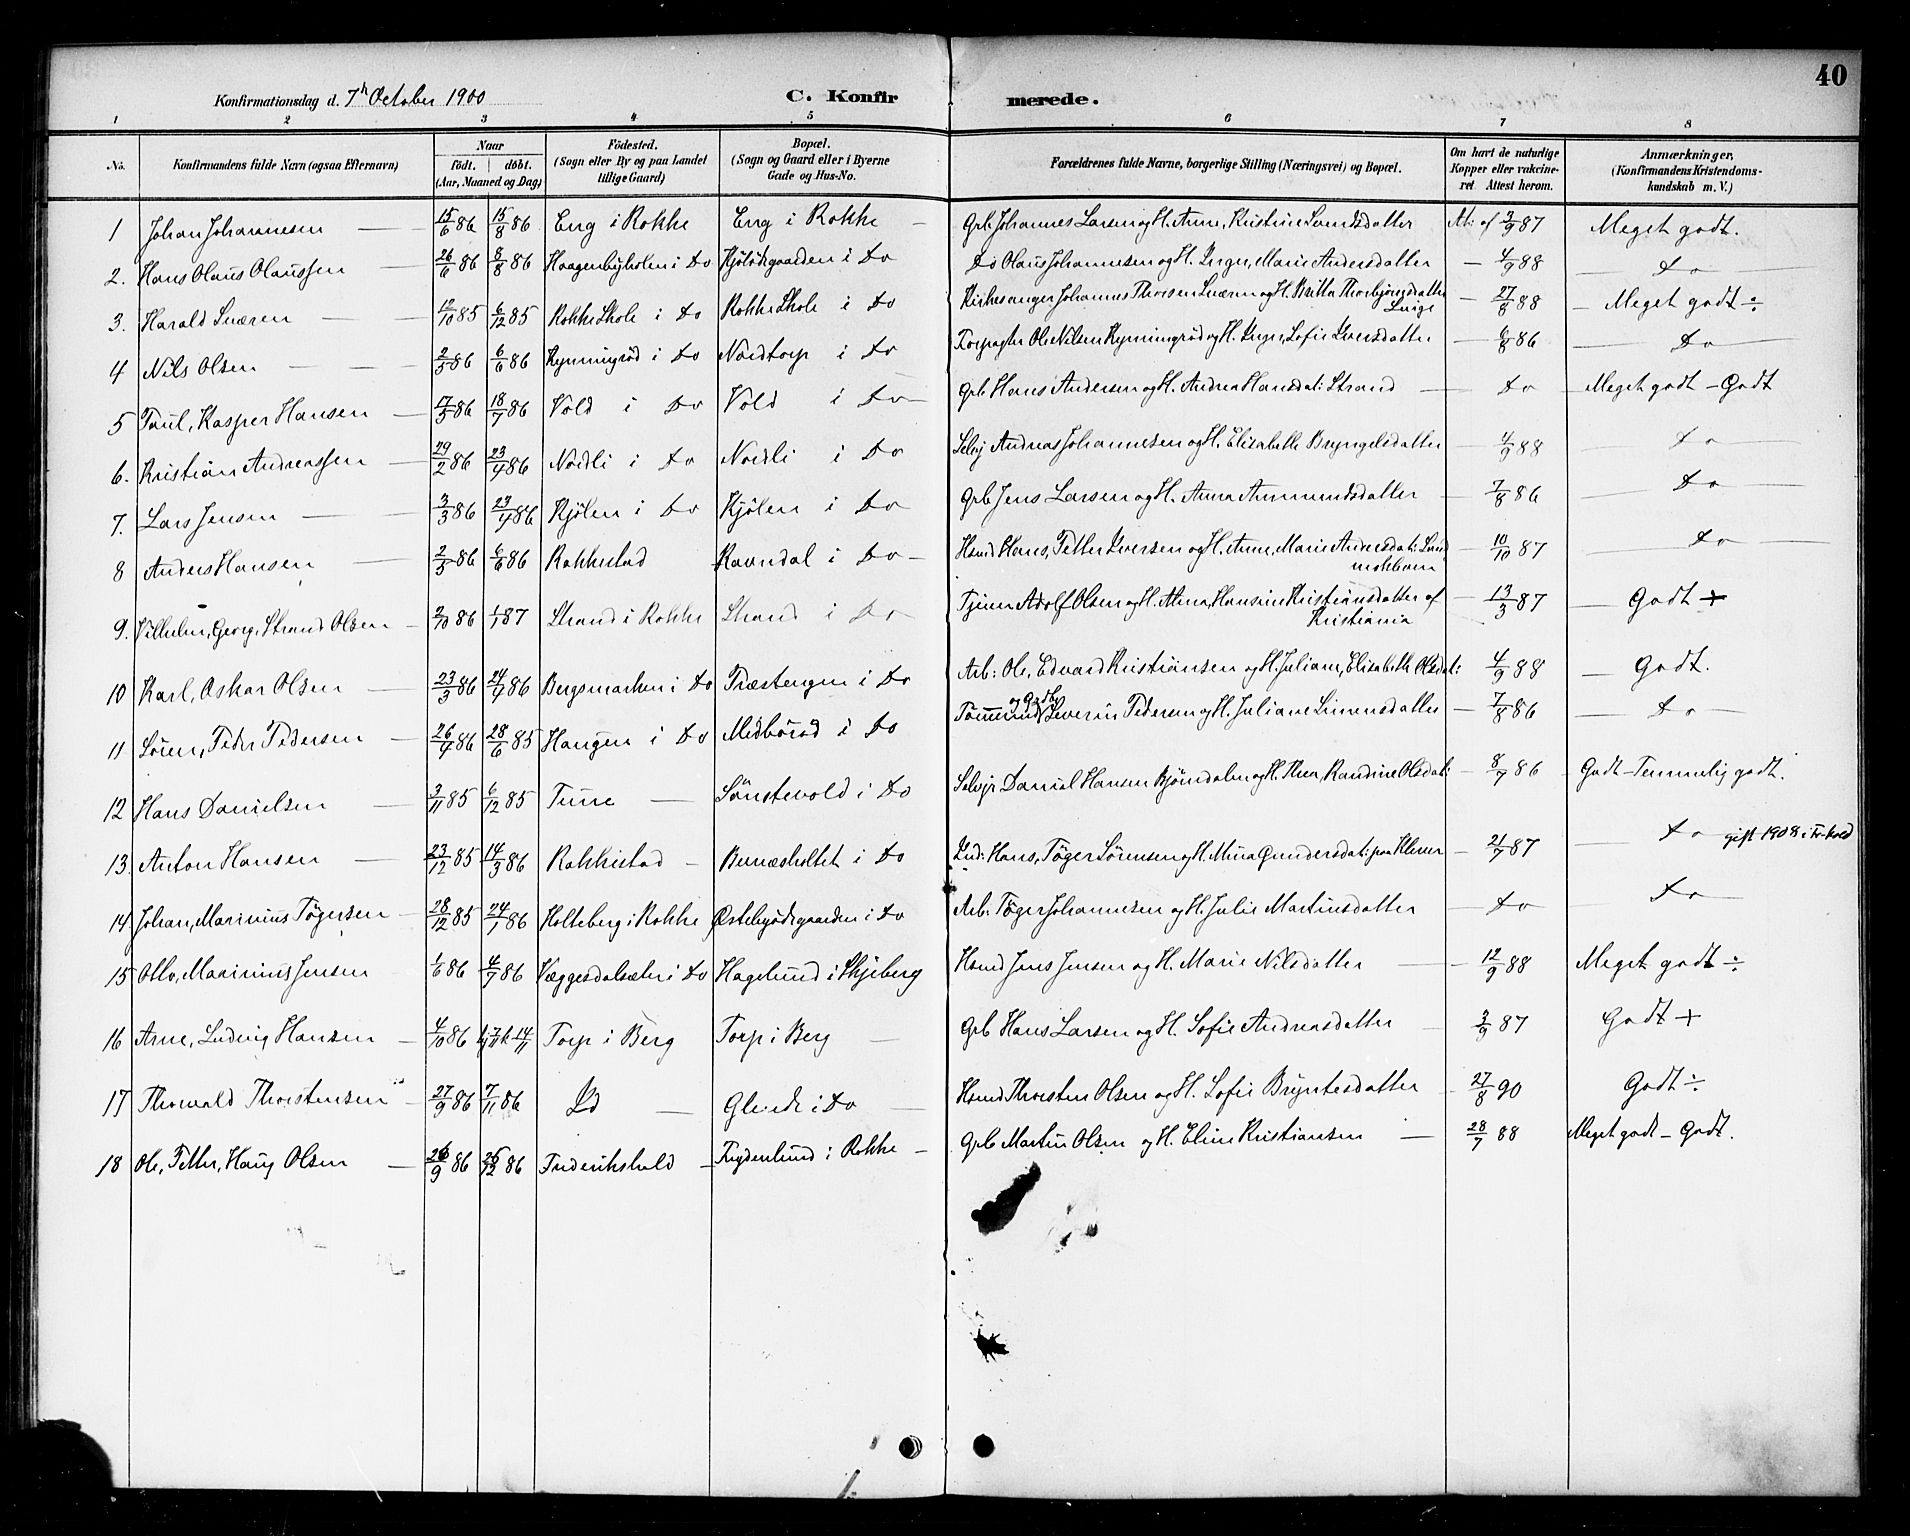 40
Konfirmationsdag d. 7de October 1900
C. Konfirmerede.
1 2 3 4 5 6 7 8
No. Konfirmandens fulde Navn (ogsaa Efternavn) Naar födt. döbt. (Aar, Maaned og Dag) Födested. (Sogn eller By og paa Landet tillige Gaard) Bopæl. (Sogn og Gaard eller i Byerne Gade og Hus-No. Forældrenes fulde Navne, borgerlige Stilling (Næringsvei) og Bopæl. Om havt de naturlige Kopper eller vakcineret Attest herom. Anmærkninger. (Konfirmandens Kristendomskundskab m. V.)
1 Johan Johannesen 15/6 86 15/8 86 Eng i Rokke Eng i Rokke Grb. Johannes Larsen og H. Anne, Kristine Svendsdatter At: af 3/9 87 Meget godt.
2. Hans Olaus Olaussen 26/6 86 8/8 86 Haagenbyholen i Do i Do Do Olaus Johannesen og H. Inger, Marie Andersdatter 4/9 88 Do
3. Harald Snæren 12/10 85 6/12 85 Rokke Skole i Do Rokke Skole i Do Kirkesanger Johannes Thorsen Snæren og H. Britta Thorbjørnsdatter 27/8 88 Meget godt ÷
4 Nils Olsen 2/5 86 6/6 86 Rynningröd i Do Nordtorp i Do Forpagter Ole Nilsen Rynningröd og H. Inger, Sofie Iversdatter 6/8 86 Do
5 Paul, Kasper Hansen 17/5 86 18/7 86 Vold i Do Vold i Do Grb Hans Andersen og H. Andrea Hansdat: Strand Do Meget godt - Godt
6. Kristian Andreassen 29/2 86 23/4 86 Nordli i Do Nordli i Do Selvej Andreas Johannesen og H. Elisabeth Bryngelsdatter 4/9 88 Do
7. Lars Jensen 3/3 86 23/4 86 Kjölen i Do Kjölen i Do Grb Jens Larsen og H. Anna Ammundsdatter 7/8 86 Do
8 Anders Hansen 2/5 86 6/6 86 Rakkestad Ravndal i Do Hsmd Hans, Petter Iversen og H. Anne, Marie Andersdat: 10/10 87 Do
9. Vilhelm, Georg, Strand Olsen 2/10 86 1/1 87 Strand i Rokke Strand i Do Tjener Adolf Olsen og H. Alma, Hansine Kristiansdatter af Kristiania 13/3 87 Godt +
10 Karl, Oskar Olsen 23/3 86 24/4 86 Bergsmarken i Do Træstengen i Do Arb: Ole, Edvard Kristiansen og H. Juliane, Elisabeth Olsdat: 4/9 88 Godt.
11 Sören, Peder Pedersen 26/4 86 28/6 85 Haugen i Do Medböröd i Do Tömmermd og Grdbr Severin Pedersen og H. Juliane Simensdatter 7/8 86 Do
12 Hans Danielsen 3/11 85 6/12 85 Tune Sönstevold i Do Selvejr Daniel Hansen Bjöndalen og H. Thea, Randine Olsdat: 8/7 86 Godt - Temmelig godt.
13. Anton Hansen 23/12 85 14/3 86 Rakkestad Bunæsholtet i Do Ind: Hans, Töger Sörensen og H. Mina Gundersdat: paa Kleven 21/7 87 Do gift 1908 i Fr.hald
14. Johan, Marinius Tögersen 28/12 85 24/1 86 Holteberg i Rokke Østebyödegaarden i Do Arb: Töger Johannesen og H. Julie Martinsdatter Do Do
15 Otto, Marinius Jensen 1/6 86 4/7 86 Væggesdalsæter i Do Hagelund i Skjeberg Hsmd Jens Jensen og H. Marie Nilsdatter 12/9 88 Meget godt ÷
16 Arne, Ludvig Hansen 4/10 86 14/11 Torp i Berg Torp i Berg Grb Hans Larsen og H. Sofie Andreasdatter 3/9 87 Godt +
17 Thorvald Thorstensen 27/9 86 7/11 86 Id i Do Hsmd Thorsten Olsen og H. Sofie Bryntesdatter 27/8 90 Godt ÷
18 Ole, Petter, Haug Olsen 26/9 86 26/12 86 Frederikshald Frydenlund i Rokke Grb Martin Olsen og H. Eline Kristiansen 28/7 88 Meget godt - Godt.